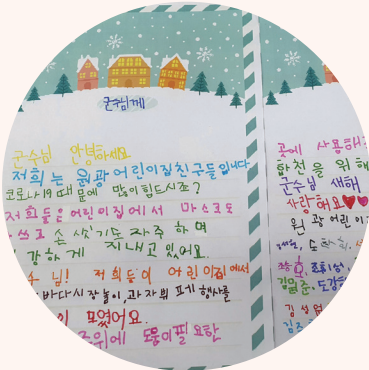 군수님께
군수님 안녕하세요
저희는 원광어린이집친구들입니다
코로나19때문에 많이힘드시죠?
저희들은어린이집에서 마스크도
쓰고 손 씻기도 자주 하며
강하게 지내고 있어요.
님! 저희들이 어린이집에서
바다시장놀이, 과자뷔페행사를
모였어요.
주위에 도움이 필요한
곳에 사용해
합천을 위해
군수님 새해
사랑해요
원광어린이